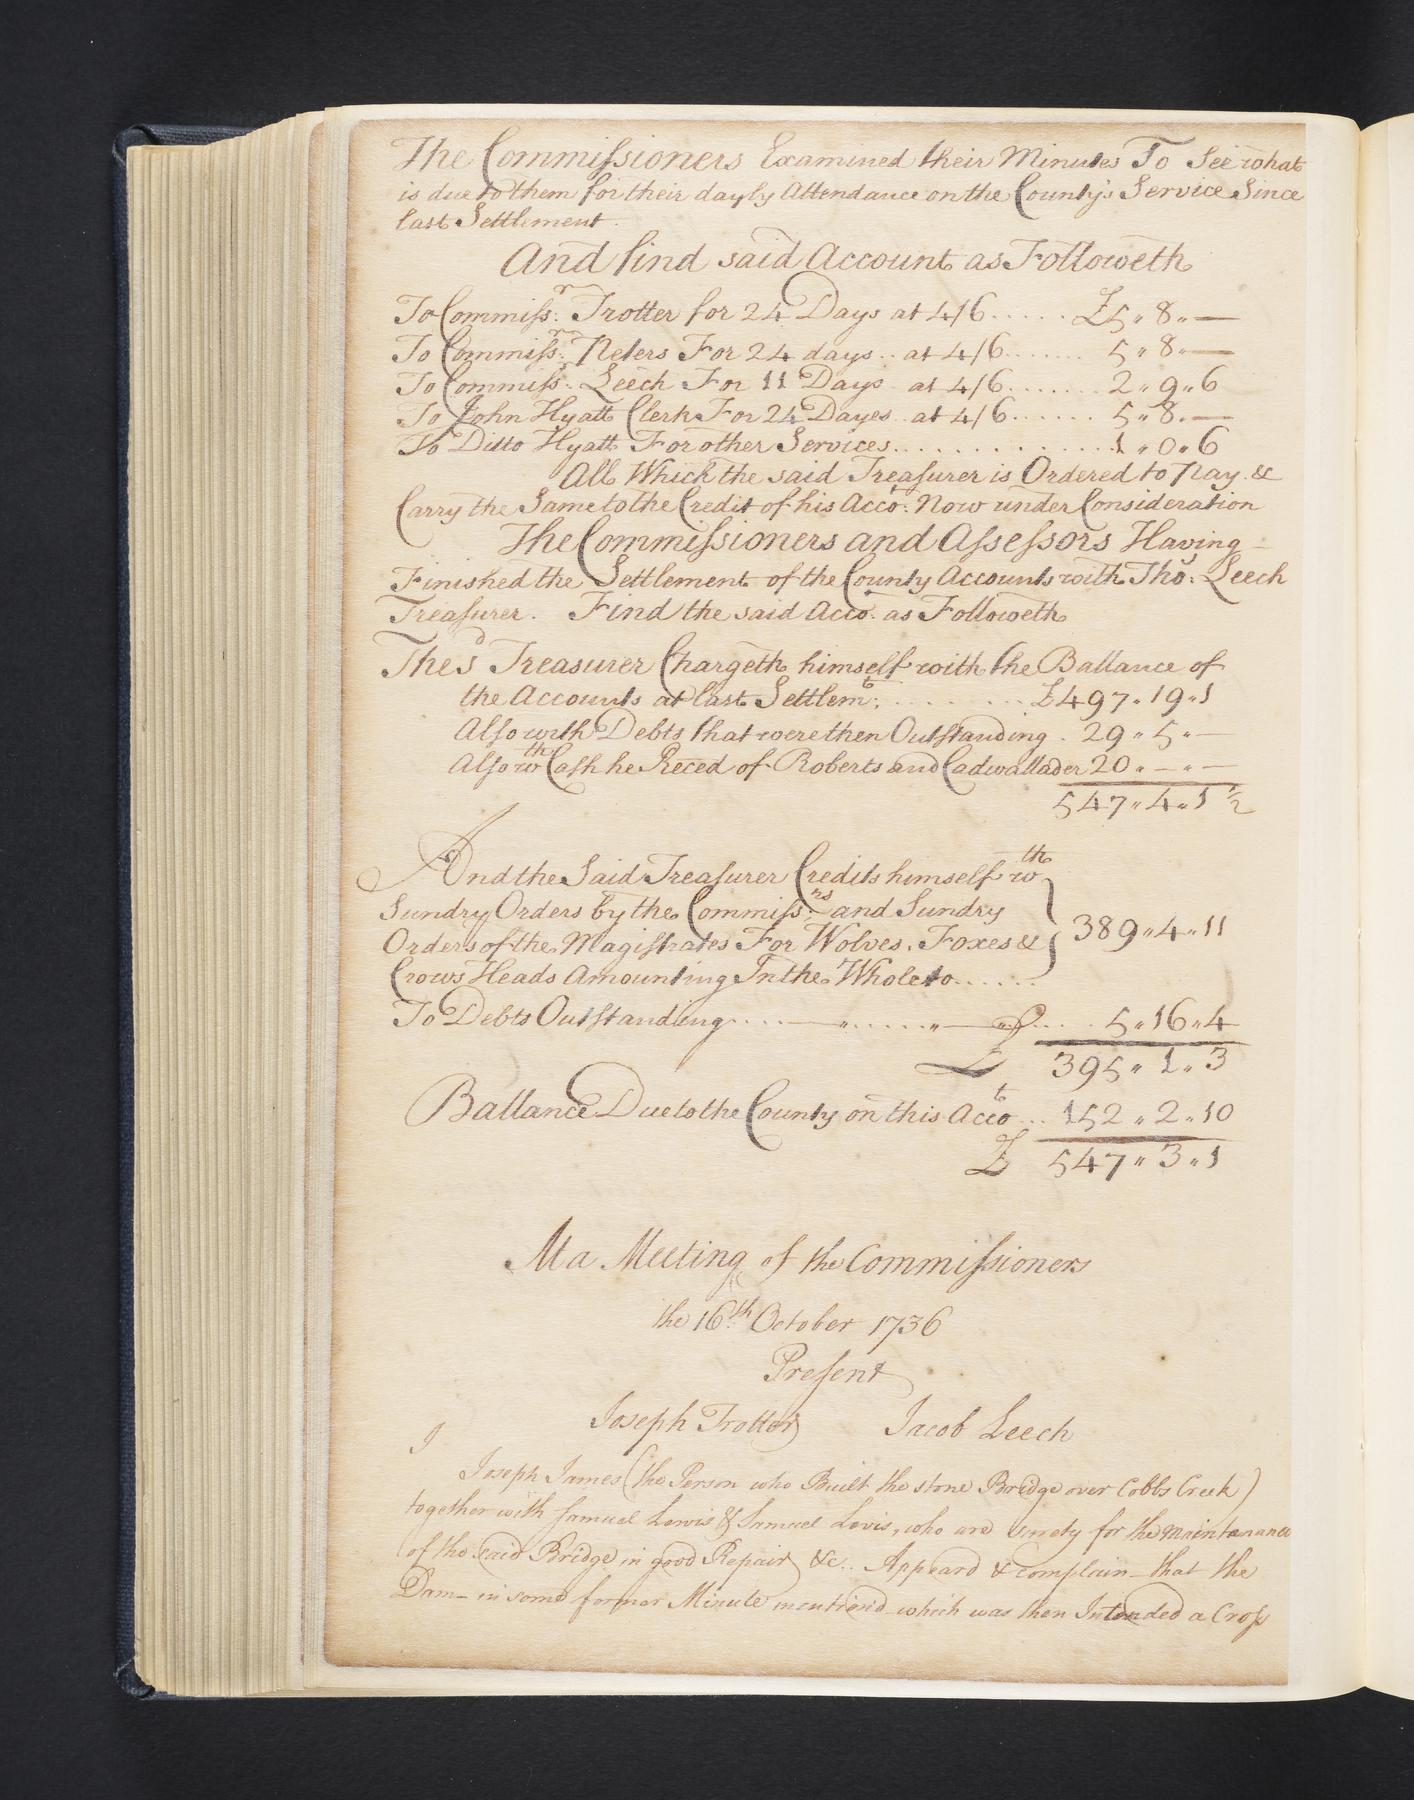 The Commissioners Examined their Minutes To See what
is due to them for their dayly Attendance on the County's Service Since
last Settlement.
And find said Account as Followeth
To Commiss:r Trotter for 24 Days at 4/6...... £5 " 8 " —
To Commiss:r Peters For 24 days.. at 4/6....... 5 " 8 " —
To Commiss:r Leech For 11 Days at 4/6....... 2 " 9 " 6
To John Hyatt Clerk For 24 Dayes at 4/6...... 5 " 8 " —
To Ditto Hyatt For other Services............. 1 " 0 " 6
All Which the said Treasurer is Ordered to Pay &
Carry the Same to the Credit of his Acco:t Now under Consideration
The Commissioners and Assessors Having
Finished the Settlement of the County Accounts with Tho:s Leech
Treasurer. Find the said Acco:t as Followeth
The sd Treasurer Chargeth himself with the Ballance of
the Accounts at last Settlem:t ........ £497 " 19 " 1
Also with Debts that were then Outstanding . 29 " 5 " —
Also wth Cash he Reced of Roberts and Cadwallader 20 " — " —
547 " 4 " 1 ½
And the Said Treasurer Credits himself wth
Sundry Orders by the Commiss:rs and Sundry
Orders of the Magistrates For Wolves, Foxes & } 389 " 4 " 11
Crows Heads Amounting In the Whole to......
To Debts Outstanding.... 5 " 16 " 4
£ 395 " 1 " 3
Ballance Due to the County on this Accot ... 152 " 2 " 10
£ 547 " 3 " 1
At a Meeting of the Commissioners
the 16th October 1736
Present
Joseph Trotter Jacob Leech
J
Joseph James (the Person who Built the stone Bridge over Cobbs Creek)
together with Samuel Lewis & Samuel Levis, who are surety for the Maintanance
of the said Bridge in good Repair &c.. Appeard & complain that the
Dam in some former Minute mention'd which was then Intended a Cross